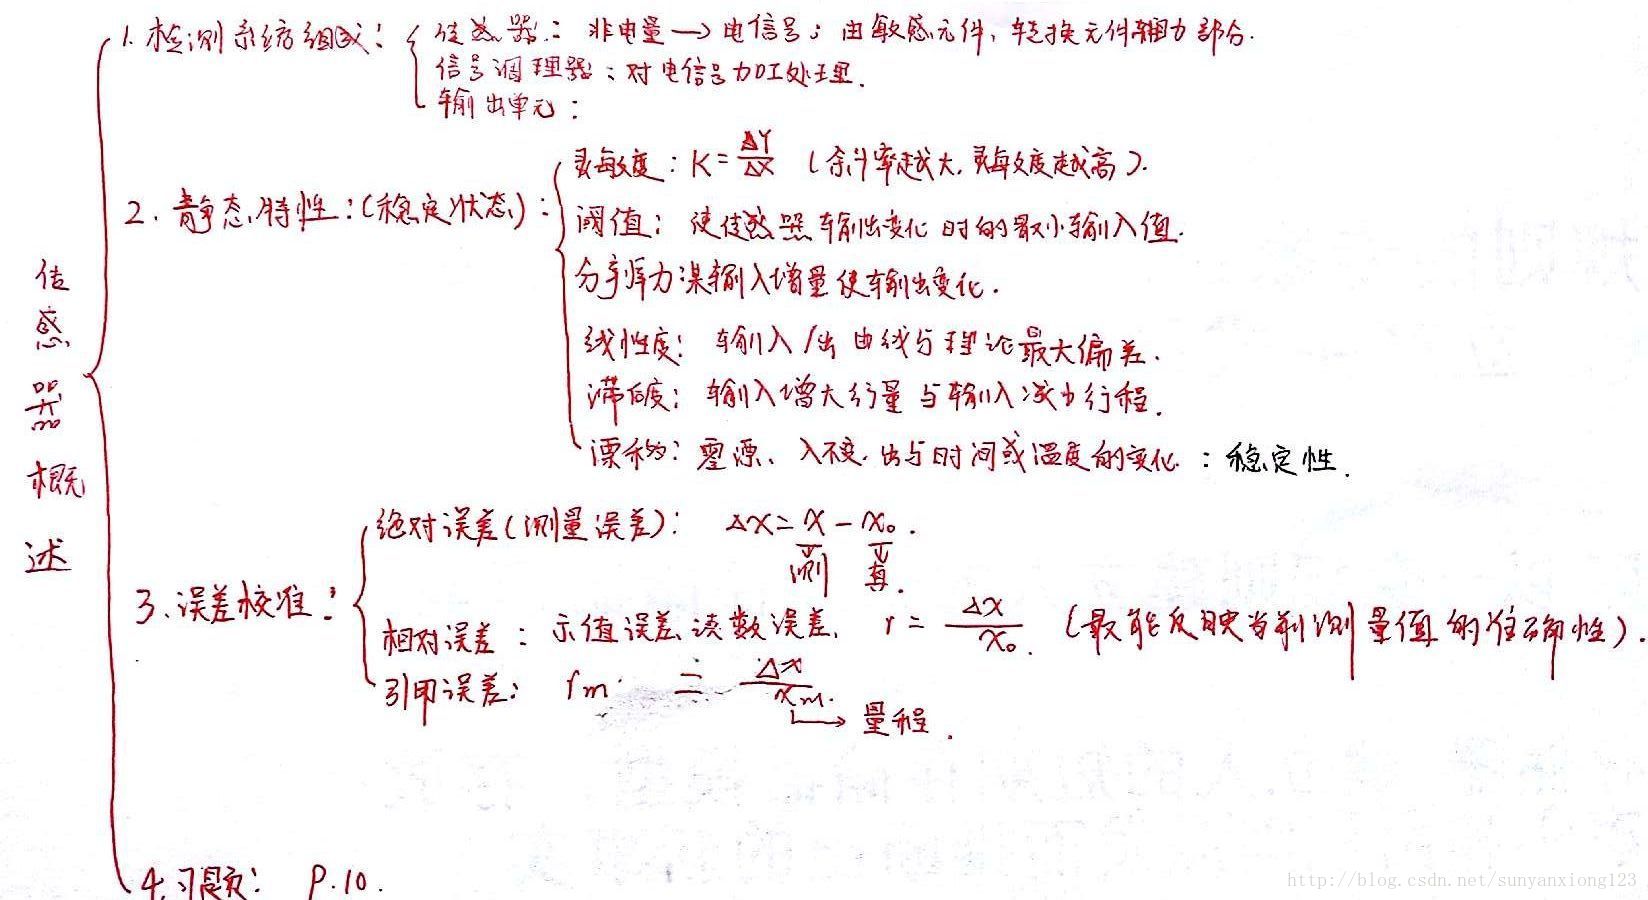 传感器概述
1. 检测系统组成:
传感器: 非电量→电信号; 由敏感元件, 转换元件辅力部分.
信号调理器: 对电信号加工处理.
输出单元:
2. 静态特性: (稳定状态):
灵敏度: K=ΔY/ΔX (斜率越大, 灵敏度越高).
阈值: 使传感器输出变化时的最小输入值.
分辨力 输入增量使输出变化.
线性度: 输入/出曲线与理论最大偏差.
滞后度: 输入增大行量与输入减少行程.
漂移: 零漂、入不变, 出与时间或温度的变化: 稳定性.
3. 误差校准:
绝对误差(测量误差): Δx=x-x₀.
测 真.
相对误差: 示值误差、读数误差, r=Δx/x₀. (最能反映当前测量值的准确性).
引用误差: rm=Δx/xm.
→量程.
4. 习题: P.10.
http://blog.csdn.net/sunyanxiong123